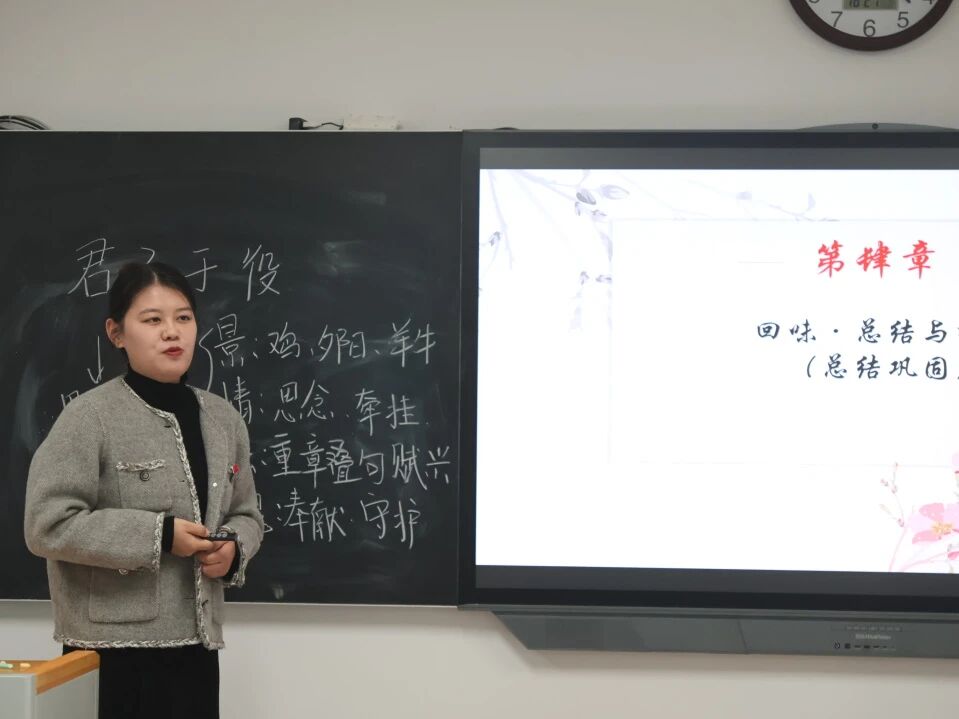 君子于役
景：鸡、夕阳、羊牛
情：思念、牵挂
：重章叠句赋兴
：奉献、守护
第肆章
回味·总结与
（总结巩固
7 6 5